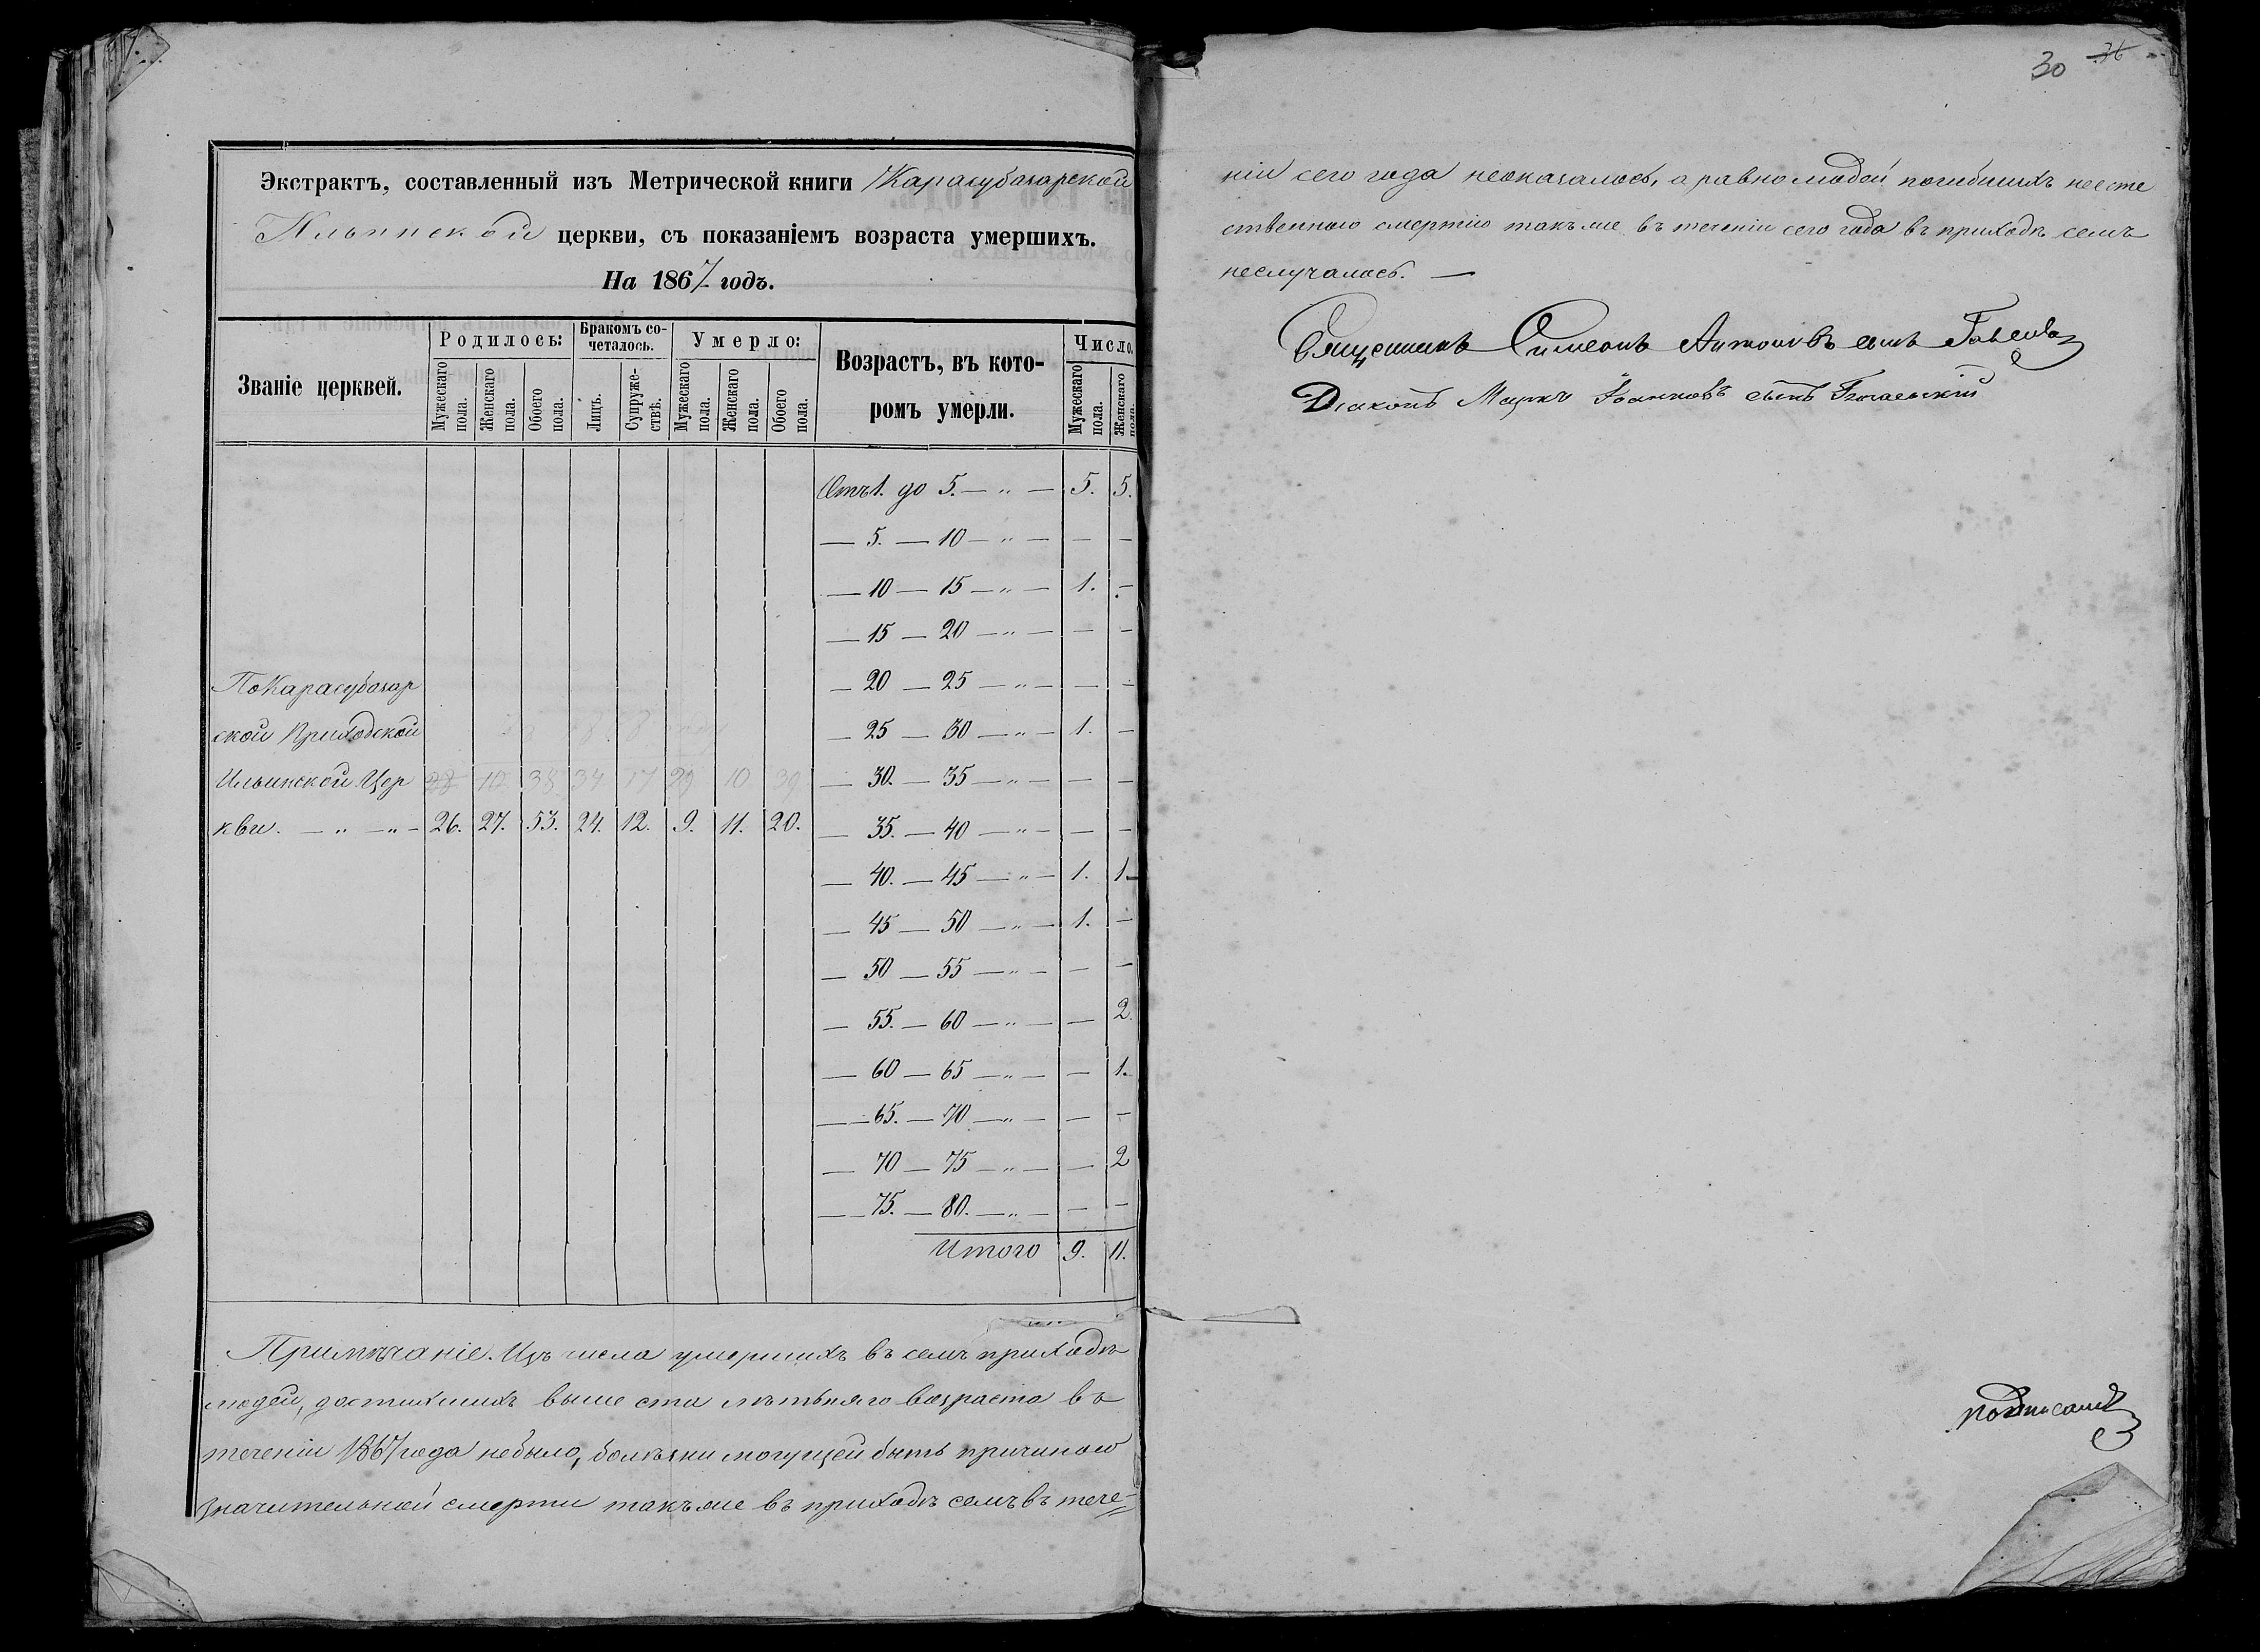 Экстрактъ, составленный изъ Метрической книги Карасубазарской
Ильинской церкви, съ показаніемъ возраста умершихъ.
На 1867 годъ.
Званіе церквей.
Родилось:
Мужескаго пола.
Женскаго пола.
Обоего пола.
Бракомъ со-
четалось.
Лицъ.
Супруже-
ствъ.
Умерло:
Мужескаго пола.
Женскаго пола.
Обоего пола.
Возрастъ, въ кото-
ромъ умерли.
Число.
Мужескаго пола.
Женскаго пола.
Отъ 1. до 5. — „ — 5. 5.
— 5. — 10 — „ — — —
— 10 — 15 — „ — 1. —
— 15 — 20 — „ — — —
По Карасубазар — 20 — 25 — „ — — —
ской Приходской — 25 — 30 — „ — 1. —
Ильинской Цер 10 38 34 17 29 10 39 — 30. — 35 — „ — — —
кви. — „ — „ — 26. 27. 53. 24. 12. 9. 11. 20. — 35. — 40 — „ — — —
— 40. — 45 — „ — 1. 1.
— 45 — 50 — „ — 1. —
— 50 — 55 — „ — — —
— 55. — 60 — „ — — 2.
— 60 — 65 — „ — — 1.
— 65. — 70 — „ — — —
— 70 — 75 — „ — — 2
— 75. — 80. — „ — — —
Итого 9. 11.
Примѣчаніе. Изъ числа умершихъ въ семъ приходѣ
людей, достигшихъ выше ста лѣтьняго возраста въ
теченіи 1867 года небыло, болѣзни могущей быть причиною
значительной смерти такъже въ приходѣ семъ въ тече-
30 36
ніи сего года неоказалось, а равно людей погибшихъ неесте
ственною смертію такъже въ теченіи сего года въ приходѣ семъ
неслучалось. —
Священникъ Симеонъ Антоновъ сынъ
Діаконъ Маркъ Іоанновъ сынъ